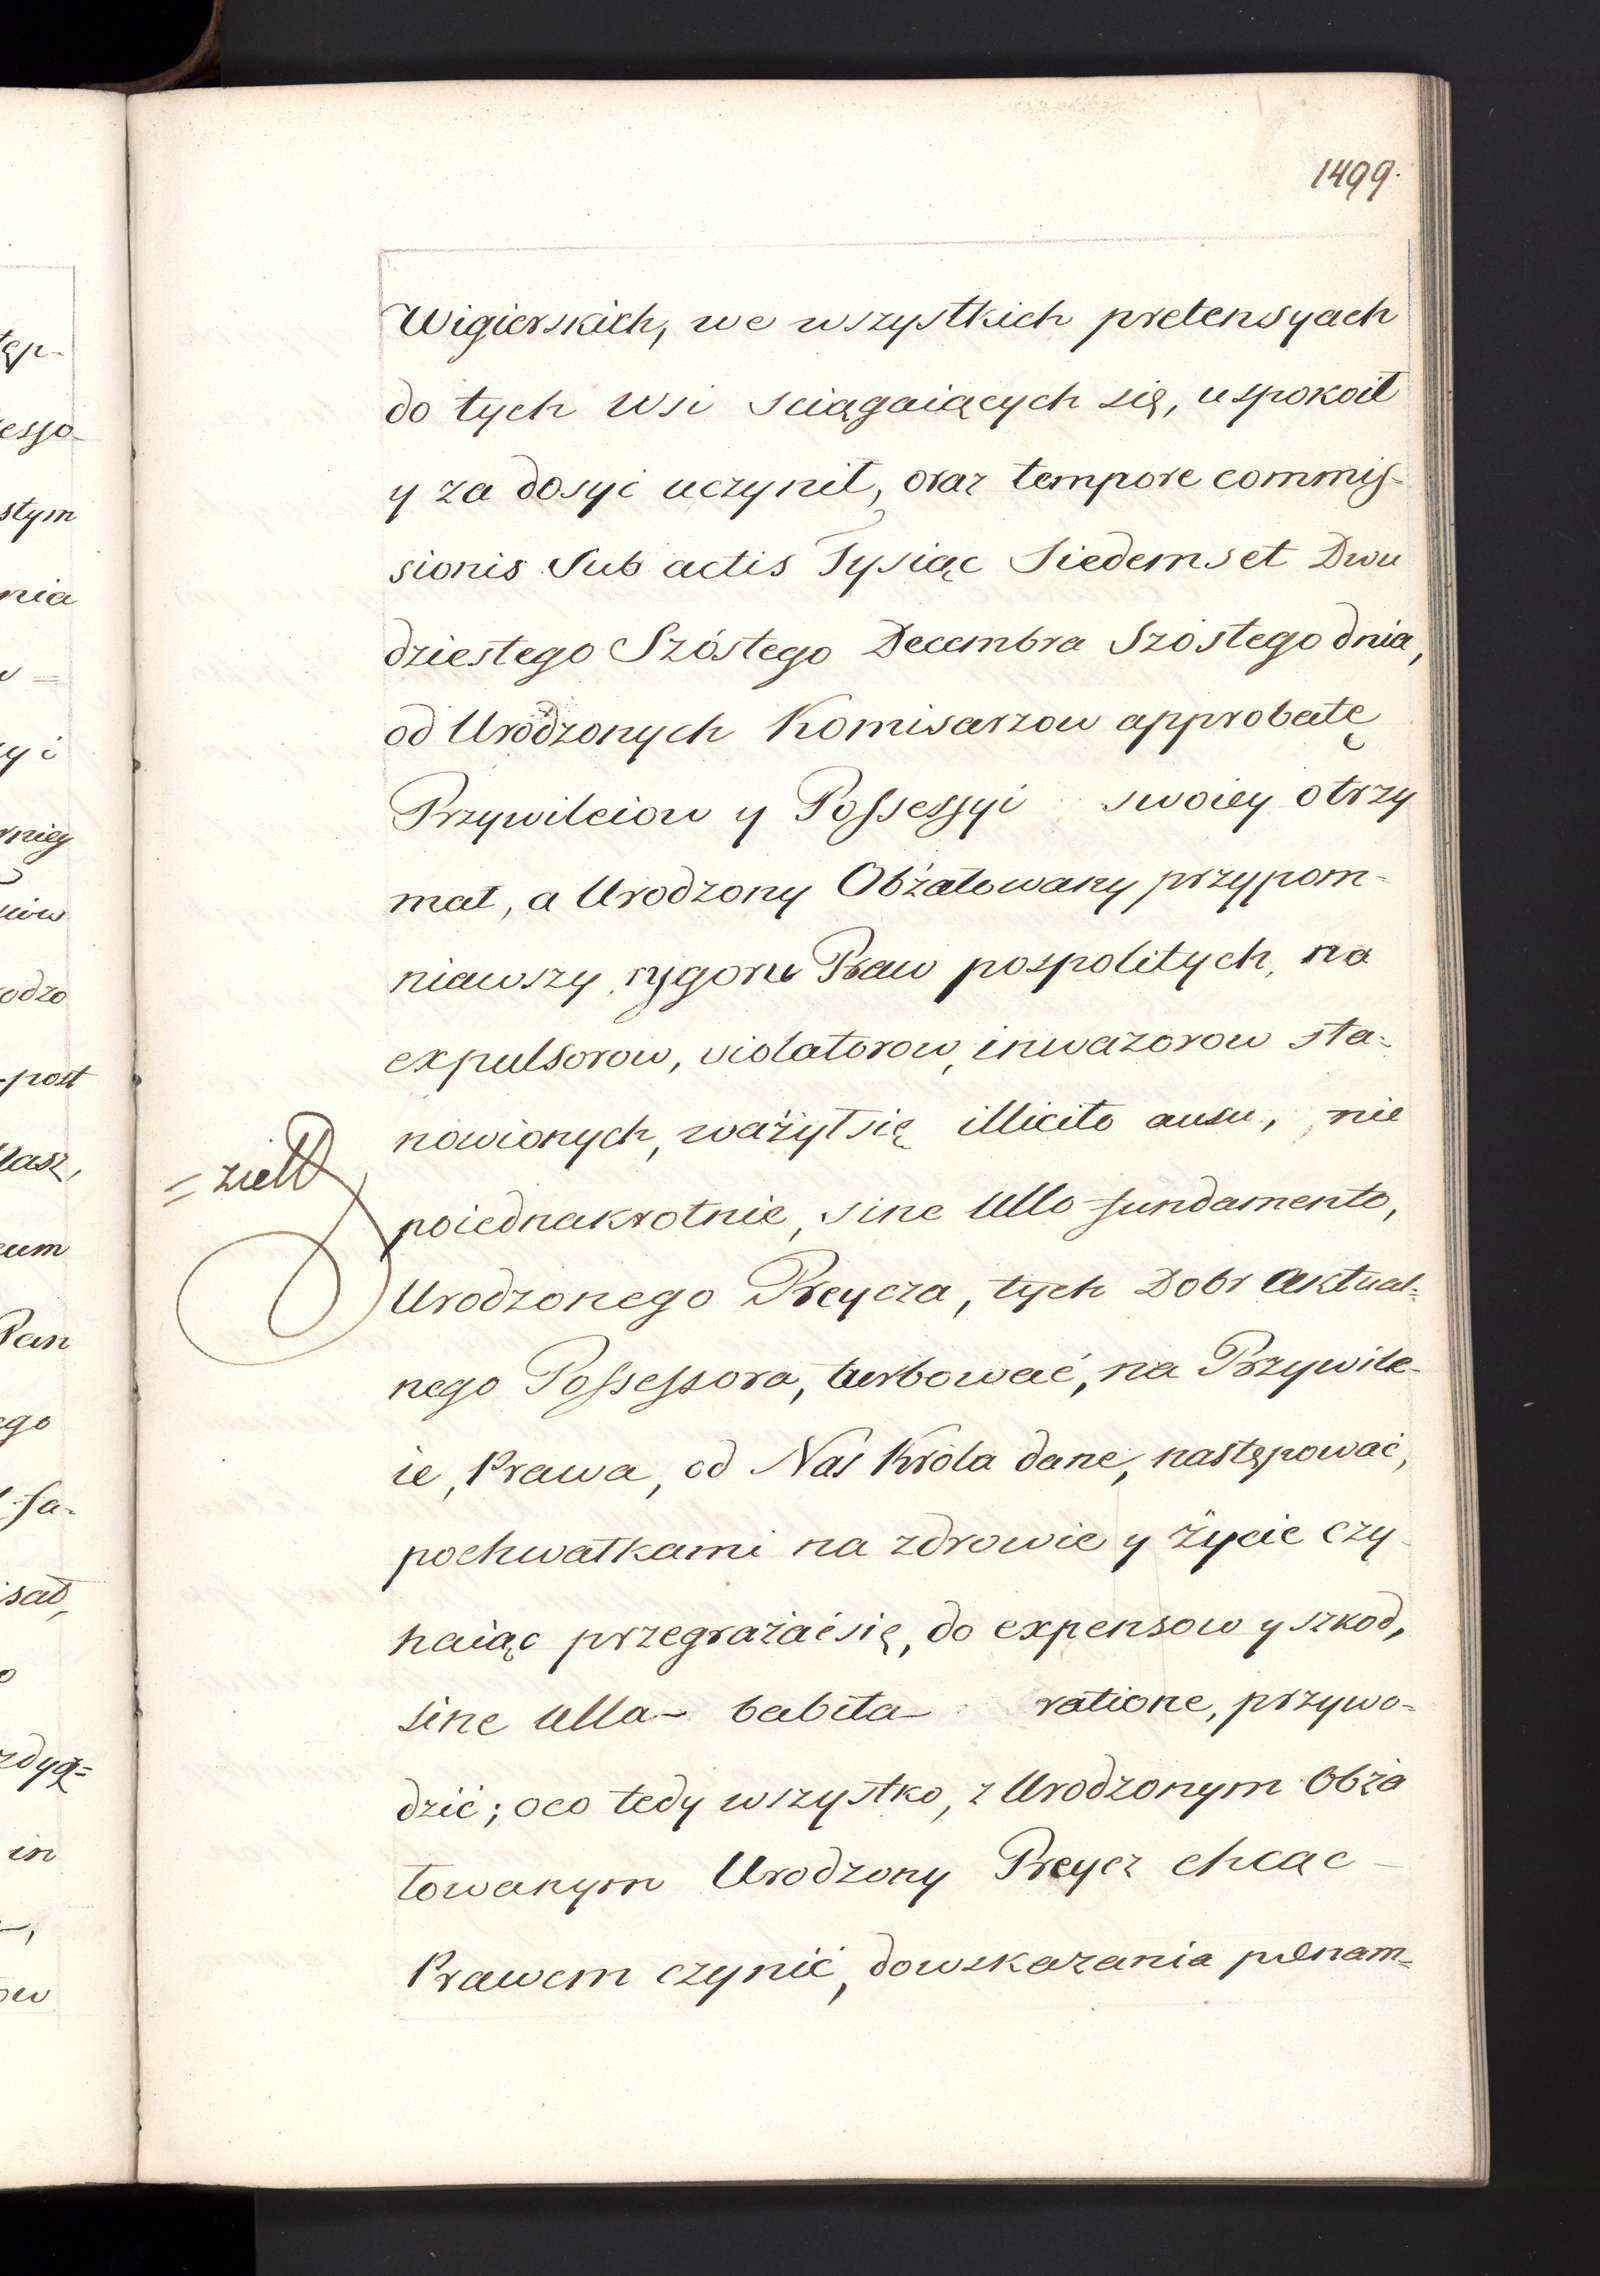 1499.
Wigierskich, we wszystkich pretensyach
do tych Wsi sciągaiących się, uspokoił
y za dosyć uczynił, oraz tempore commis-
sionis Sub actis Tysiąc Siedemset Dwu
dziestego Szóstego Decembra Szóstego dnia,
od Urodzonych Komisarzow approbatę
Przywileiow y Possessyi swoiey otrzy
mał, a Urodzony Obżałowany przypom=
niawszy rygoru Praw pospolitych, na
expulsorow, violatorow, inwazorow sta=
nowionych, ważył się illicito ausu, nie
= zielt
poiednakrotnie, sine Ullo fundamento,
Urodzonego Preycza, tych Dobr Aktual=
nego Possessora, turbować, na Przywile-
ie, Prawa, od Nas Króla dane, następować,
pochwałkami na zdrowie y życie czy
haiąc przegrażać się, do expensow y szkod,
sine Ulla babita ratione, przywo=
dzić; oco tedy wszystko, z Urodzonym Obża
łowanym Urodzony Preycz chcąc
Prawem czynić, dowskazania pœnam=
tęp-
esso-
stym
nia
y i
rniey
odzo
post
łasz,
eum
Pan
ego
fa=
isał,
in
ow